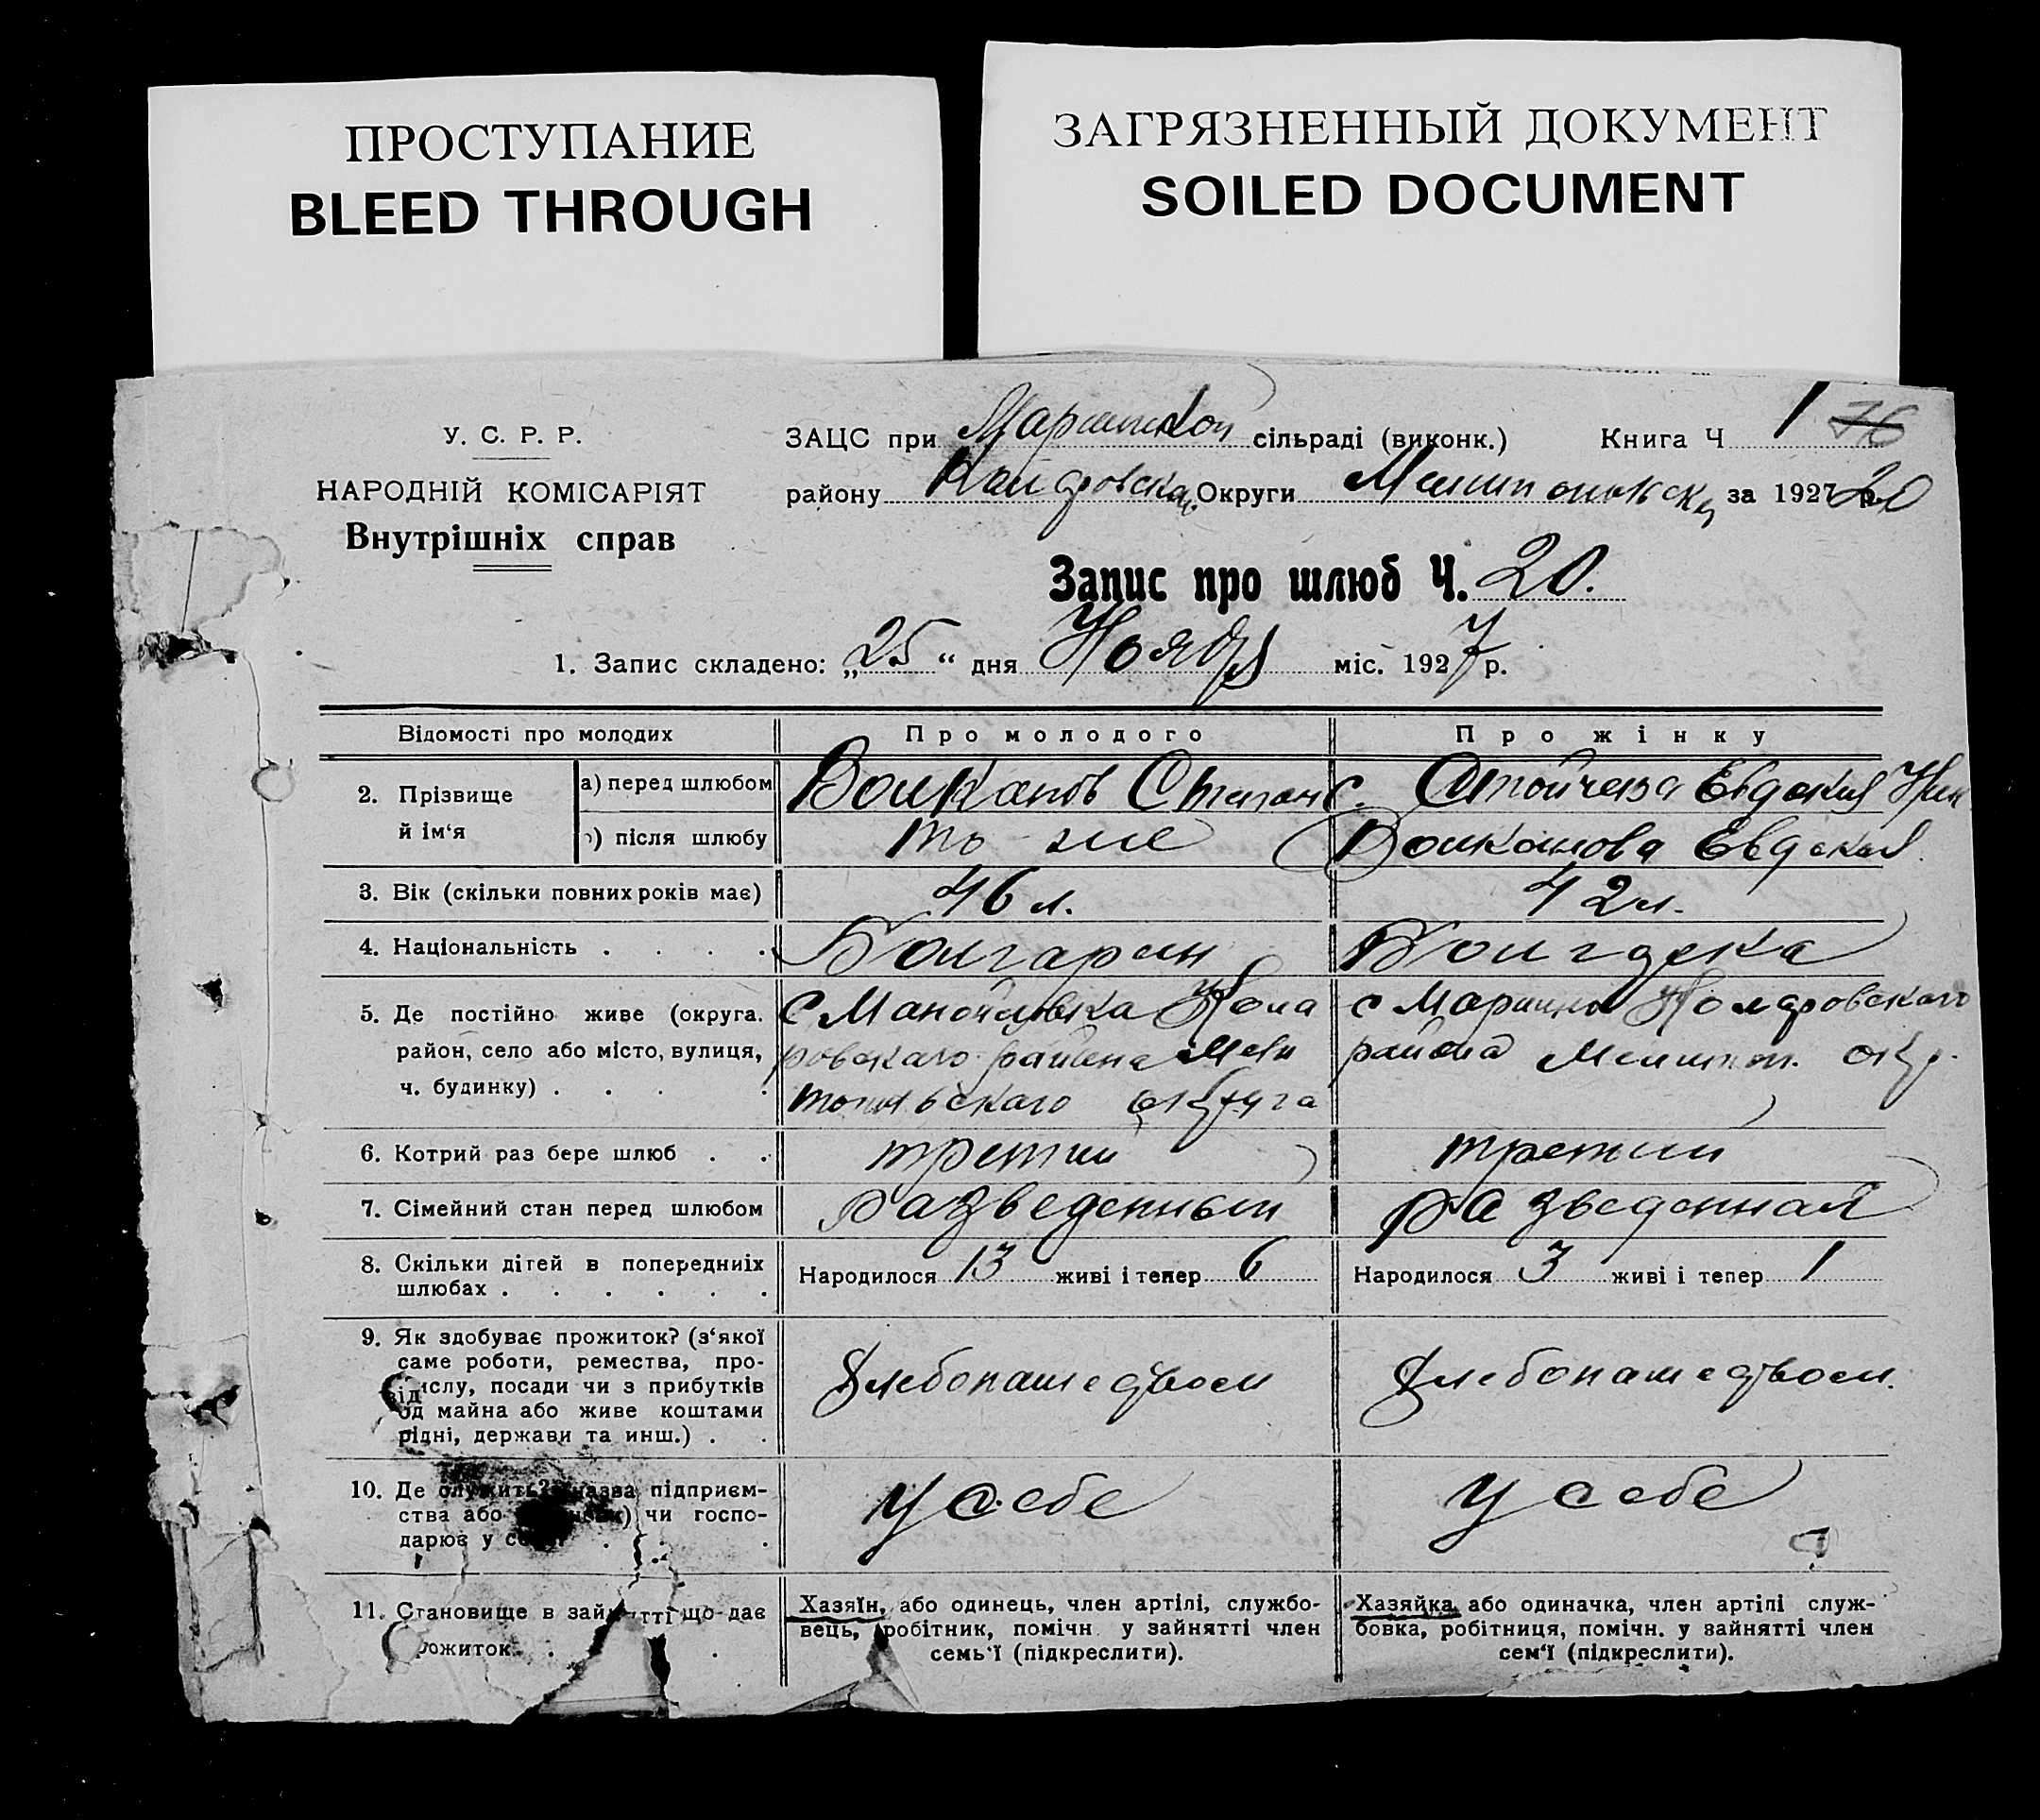 ПРОСТУПАНИЕ
BLEED THROUGH
ЗАГРЯЗНЕННЫЙ ДОКУМЕНТ
SOILED DOCUMENT
У. С. Р. Р.
НАРОДНІЙ КОМІСАРІЯТ
Внутрішніх справ
ЗАЦС при сільраді (виконк.) Книга Ч 1 76
району Округи за 1927
Запис про шлюб Ч. 20.
1. Запис складено: „25“ дня Ноября міс. 1927 р.
Відомості про молодих Про молодого Про жінку
2. Прізвище й ім‘я
а) перед шлюбом Волканов Степан С. Стойчева Евдокия Ник
після шлюбу то-же Волканова Евдокия
3. Вік (скільки повних років має) 46 л. 42 л.
4. Національність . . . . Болгарин Болгарка
5. Де постійно живе (округа. с Мануйловка Кола с Марино Коларовского
район, село або місто, вулиця, ровского района Мели района Мелитоп. окр.
ч. будинку) . . . . топольского округа
6. Котрий раз бере шлюб . . третий третий
7. Сімейний стан перед шлюбом Разведенный Разведенная
8. Скільки дітей в попередниіх Народилося 13 живі і тепер 6 Народилося 3 живі і тепер 1
шлюбах . . . . . .
9. Як здобуває прожиток? (з‘якої
саме роботи, ремества, про-
ислу, посади чи з прибутків Хлебопашедвом Хлебопашедвом.
од майна або живе коштами
рідні, держави та инш.) . .
10. Де служить? назва підприєм- у себе у себе
ства або чи госпо-
дарює у
11. Становище в зайнятті що дає Хазяїн, або одинець, член артілі, службо- Хазяйка, або одиначка, член артілі служ-
ожиток. . . вець, робітник, помічн. у зайнятті член бовка, робітниця, помічн. у зайнятті член
семь‘ї (підкреслити). сем‘ї (підкреслити).